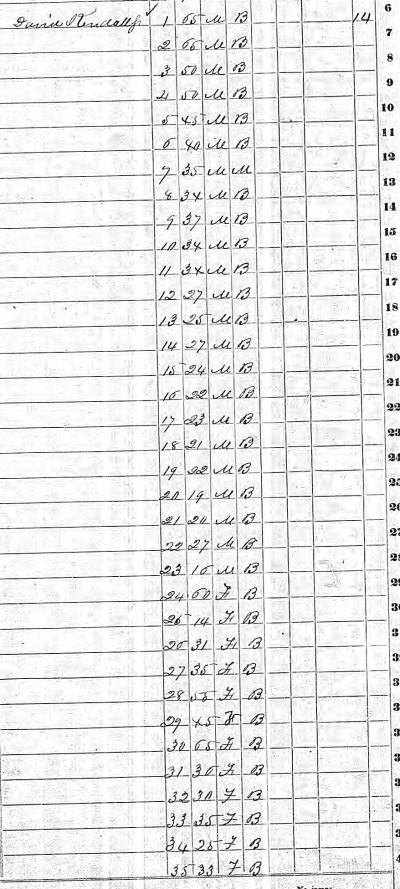 David Kendall 1 65 M B 14 6
2 65 M B 7
3 50 M B 8
4 50 M B 9
5 45 M B 10
6 40 M B 11
7 35 M M 12
8 34 M B 13
9 37 M B 14
10 34 M B 15
11 34 M B 16
12 27 M B 17
13 25 M B 18
14 27 M B 19
15 24 M B 20
16 22 M B 21
17 23 M B 22
18 21 M B 23
19 22 M B 24
20 19 M B
21 20 M B
22 27 M B
23 16 M B
24 60 F B
25 14 F B
26 31 F B
27 35 F B
28 F B
29 45 F B
30 65 F B
31 36 F B
32 30 F B
33 35 F B
34 25 F B
35 33 F B